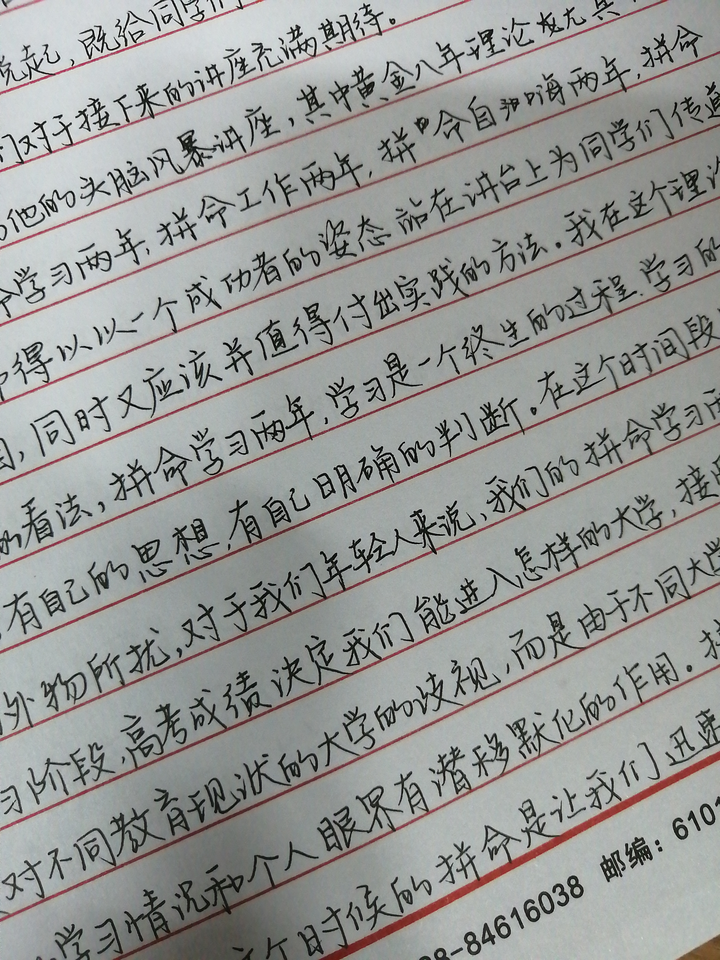 说起，既给同学们
们对于接下来的讲座充满期待。
他的头脑风暴讲座，其中黄金八年理论
学习两年，拼命工作两年，拼命自两年，拼命
得以以一个成功者的姿态站在讲台上为同学们传道
，同时又应该并值得付出实践的方法。我在这个理
的看法，拼命学习两年，学习是一个终生的过程，学习的
有自己的思想，有自己明确的判断。在这个时间段
外物所扰，对于我们年轻人来说，我们的拼命学习
习阶段，高考成绩决定我们能进入怎样的大学，接
对不同教育现状的大学的歧视，而是由于不同大学
学习情况和个人眼界有潜移默化的作用。
个时候的拼命是让我们迅速
8-84616038 邮编：6101